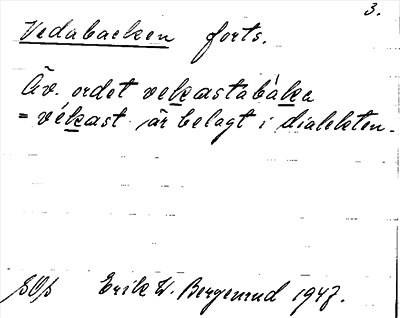 3.
Vedabacken forts.
Äv. ordet vekastabàka
= vékast är belagt i dialekten.
Erik W. Bergenrud 1947.